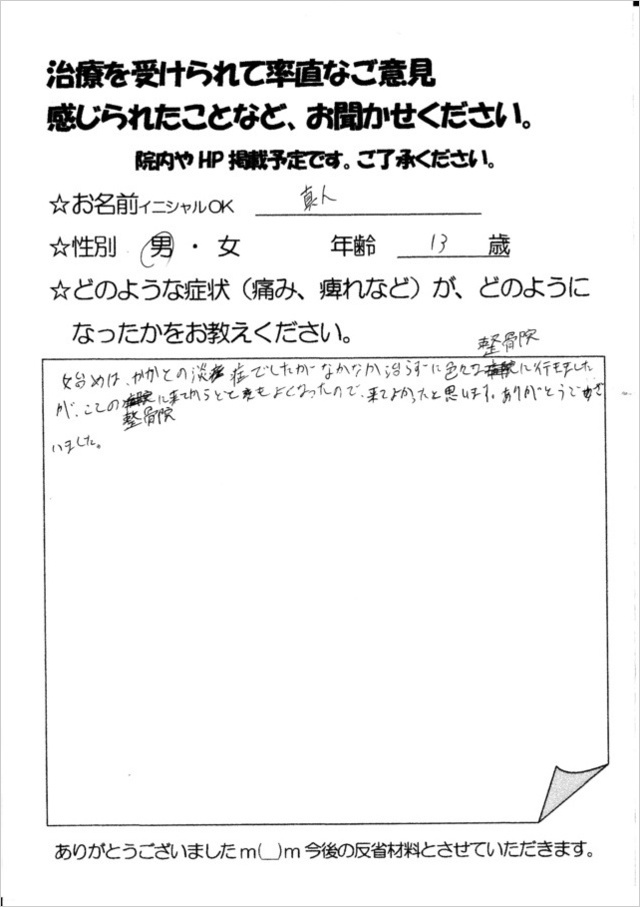 治療を受けられて率直なご意見
感じられたことなど、お聞かせください。
院内やHP掲載予定です。ご了承ください。
☆お名前イニシャルOK 真人
☆性別 男・女 年齢 13 歳
☆どのような症状（痛み、痺れなど）が、どのように
なったかをお教えください。
整骨院
始めは、かかとの炎症でしたがなかなか治らずに色々な に行きました
が、ここの に来てからとてもよくなったので、来てよかったと思います。ありがとうござ
整骨院
いました。
ありがとうございましたm(__)m今後の反省材料とさせていただきます。